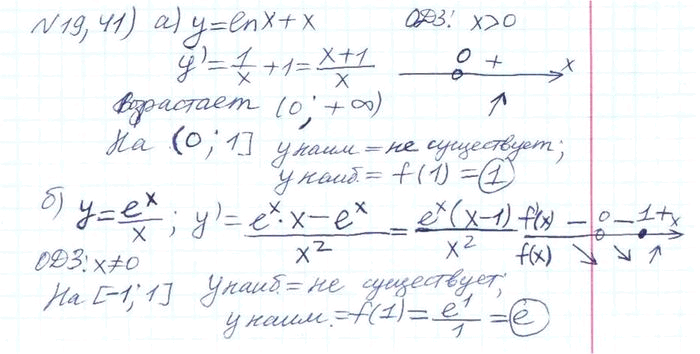 N19,41) а) y=lnx+x ОДЗ: x>0
y'=1/x+1=(x+1)/x 0 + x
Возрастает (0; +∞) ↗
На (0; 1] yнаим=не существует;
yнаиб.=f(1)=1
б) y=e^x/x; y'=(e^x·x-e^x)/x^2=e^x(x-1)/x^2 f'(x) - 0 - 1 + x
ОДЗ: x≠0 f(x) ↘ ↘ ↗
На [-1; 1] yнаиб=не существует;
yнаим.=f(1)=e^1/1=e